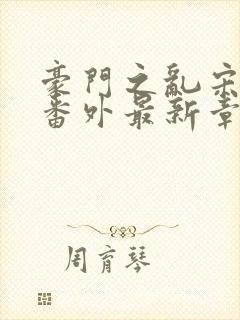 豪門之亂宋
番外最新章
周育琴